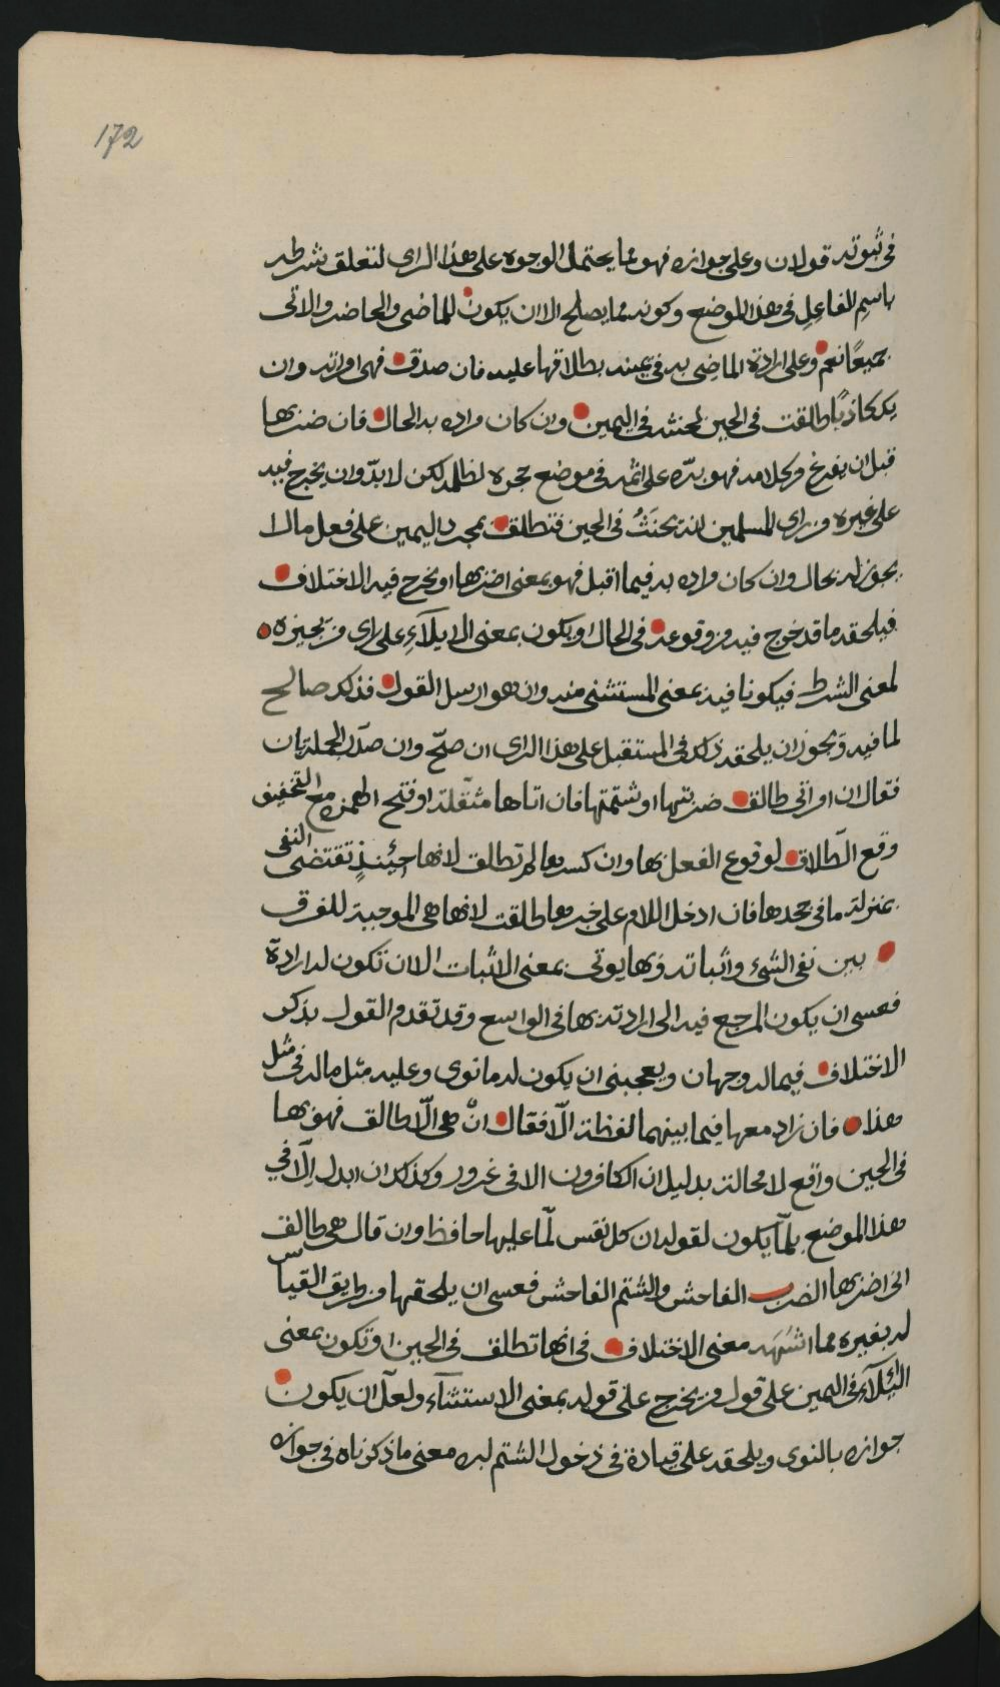 172
في ثبوته قولان وعلى جوازه فهو مما يحتمل الوجوه على هذا الراي لتعلق شرطه
باسمِ الفاعِلِ في هذا الموضع وكونه مما يصلح الا ان يكون للماضي والحاضر والاتى
جميعًا نعم وعلى ارادة الماضِي به في يمينه بطلاقها عليه فان صدق فهي امراته وان
يك كاذبًا طلقت في الحين لحنثه في اليمين وان كان مراده به الحال فان ضربها
قبل ان يفرغ من كلامه فهو بره على اثمه في موضع حجره لظلمه لكن لا بدّ وان يخرج فيه
على غيره من راي المسلمين انه يحنَثُ في الحين فتطلق بمجرد اليمين على فعل ما لا
يجوز له بحال وان كان مراده به فيما اقبل فهو بمعنى اضربها او يخرج فيه الاختلاف
فيلحقه ما قد خرج فيه من وقوعه في الحال او يكون بمعنى الايلآءِ على راي من يجيزه
لمعنى الشرط فيكونا فيه بمعنى المستثنى منه وان هو ارسل القول فذلك صالح
لما فيه ويجوز ان يلحقه ذلك في المستقبل على هذا الراى ان صحّ وان صدّر الجملة بان
فقال ان امراتى طالق ضربتها او شتمتها فان اتاها مثقّلة او فتح الهمزة مع التخفيف
وقع الطّلاق لوقوع الفعل بها وان كسرها لم تطلق لانها حينئذٍ تقتضى النفى
بمنزلة ما في جحدها فان ادخل اللام على خبرها طلقت لانها هى الموجبة للفرق
بين نفي الشىء واثباته وبها يوتى بمعنى الاثبات الا ان تكون له ارادة
فعسى ان يكون المرجع فيه الى ارادته بها في الواسع وقد تقدم القول بذكر
الاختلاف فيما له وجهان ويعجبنى ان يكون له ما نوى وعليه مثل ما له في مثل
هذا فان زاد معها فيما بينهما لفظة الّا فقال انْ هى الّا طالق فهو بها
في الحين واقع لا محالة بدليل ان الكافرون الا في غرور وكذلك ان ابدل الّا في
هذا الموضع بلمّا يكون لقوله ان كل نفس لمّا عليها حافظ وان قال هى طالق
انى اضربها الضرب الفاحش والشتم الفاحش فعسى ان يلحقها من طريق القياس
له بغيره مما اشبَهَه معنى الاختلاف في انها تطلق في الحين او تكون بمعنى
الائيلآءِ في اليمين على قول من يخرج على قوله بمعنى الاستثنآء ولعلّ ان يكون
جوازه بالنوى ويلحقه على قياده في دخول الشتم لبره معنى ما ذكرناه في جوازه